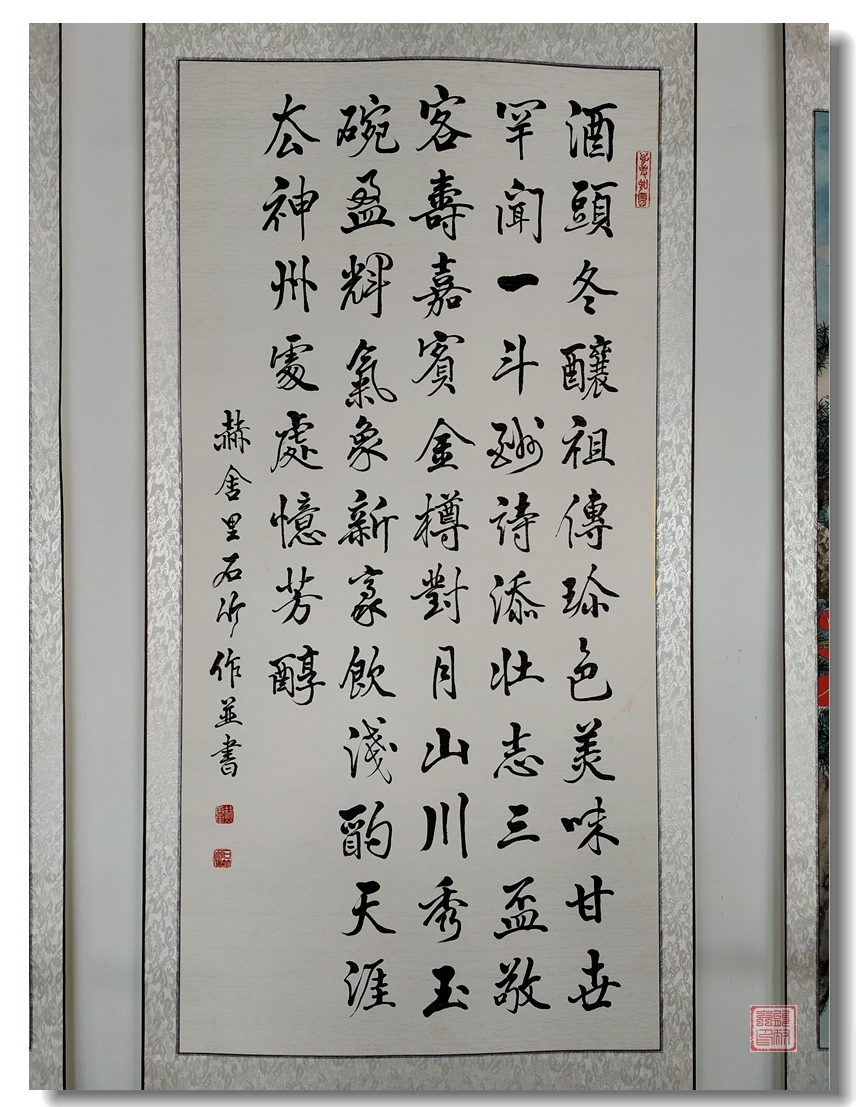 酒頭冬釀祖傳珍色美味甘世
罕聞一斗酬詩添壯志三盃敬
客壽嘉賓金樽對月山川秀玉
碗盈輝氣象新豪飲淺酌天涯
去神州處處憶芳醇
赫舍里石竹作並書